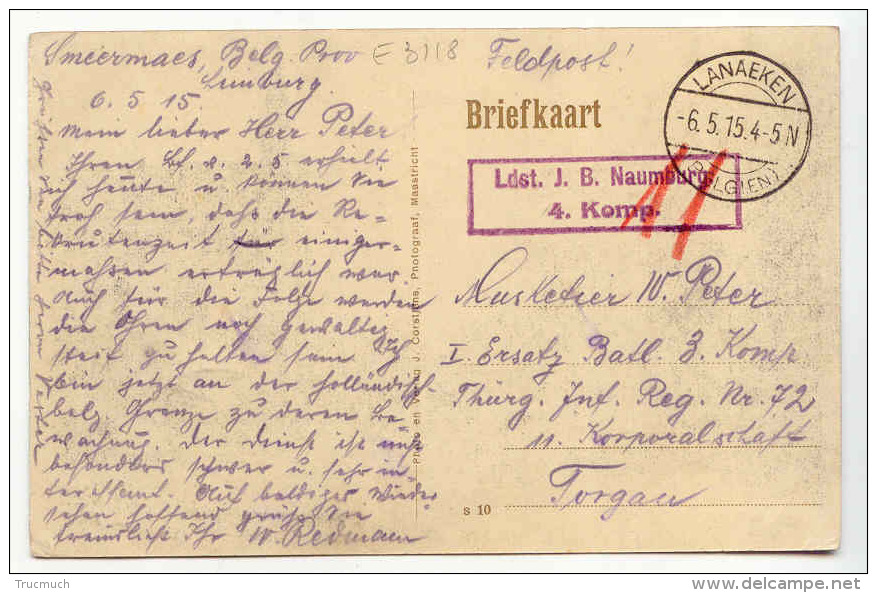 Smeermaes, Belg. Prov
Limburg.
6. 5. 15.
Mein lieber Herr Peter
Ihren Bf. v. 2.5 erhielt
ich heute u. können Sie
froh sein, daß die Re=
krutenzeit für einiger=
maßen erträglich war
Auch für die Folge werden
die Ohren noch gewaltig
steif zu halten sein Ich
bin jetzt an der holländisch-
belg. Grenze zu deren Be=
wachung. Der Dienst ist nicht
besonders schwer u. sehr in=
teressant. Auf baldiges Wieder
sehen hoffend grüßt Sie
freundlichst Ihr W. Redmann
E 3118
Feldpost!
Briefkaart
LANAEKEN
-6.5.15.4-5N
(BELGIEN)
Ldst. J. B. Naumburg
4. Komp.
11
Musketier W. Peter
I. Ersatz Batl. 3. Komp
Thürg. Inf. Reg. Nr. 72
11. Korporalschaft
Torgau
s 10
Photo en Verlag J. Corstjens, Photograaf, Maastricht
Trucmuch
delcampe.net